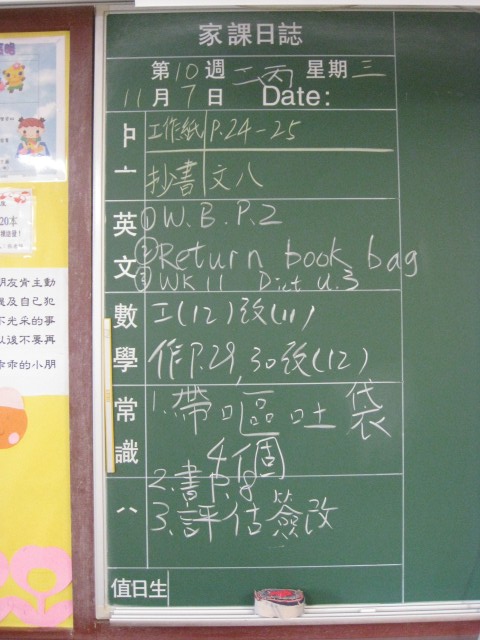 家課日誌
第10週 二丙 星期三
11月7日 Date:
工作紙 P.24-25
抄書 文八
英文
① W.B.P.2
② Return book bag
③ WK 11 Dict U.3
數學
工(12)改(11)
作P.29,30改(12)
常識
1.帶嘔吐袋
4個
2.書P.8
3.評估簽改
值日生
20本
朋友肯主動
及自己犯
不光采的事
以後不要再
乖乖的小朋